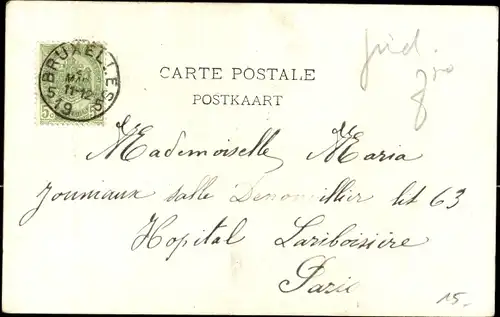 BRUXELLES 5
11-12
19 5
5
CARTE POSTALE
POSTKAART
Mademoiselle Maria
Jouniaux salle Denonvillier let 63
Hopital Lariboisière
Paris
15.-